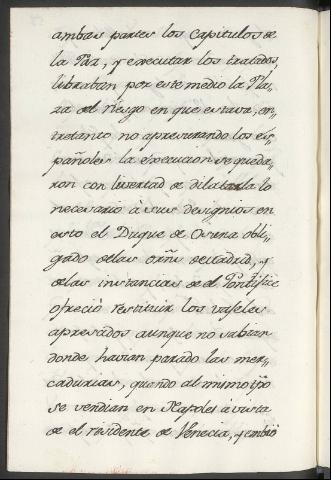 ambas partes los capitulos de
la Paz, y executar los tratados,
libraban por este medio la Pla,,
za del riesgo en que estava, en,,
tretanto no apresurando los es,,
pañoles la execucion se queda,,
ron con livertad de dilatarla lo
necesario à sus designios en
esto el Duque de Osuna obli,,
gado de las orns de Madrid, y
de las instancias de el Pontifice
ofreció restituir los vajeles
apresados aunque no sabian
donde havian parado las mer,,
cadurias, quando al mismo tpo
se vendian en Napoles à vista
de el residente de Venecia, y embió